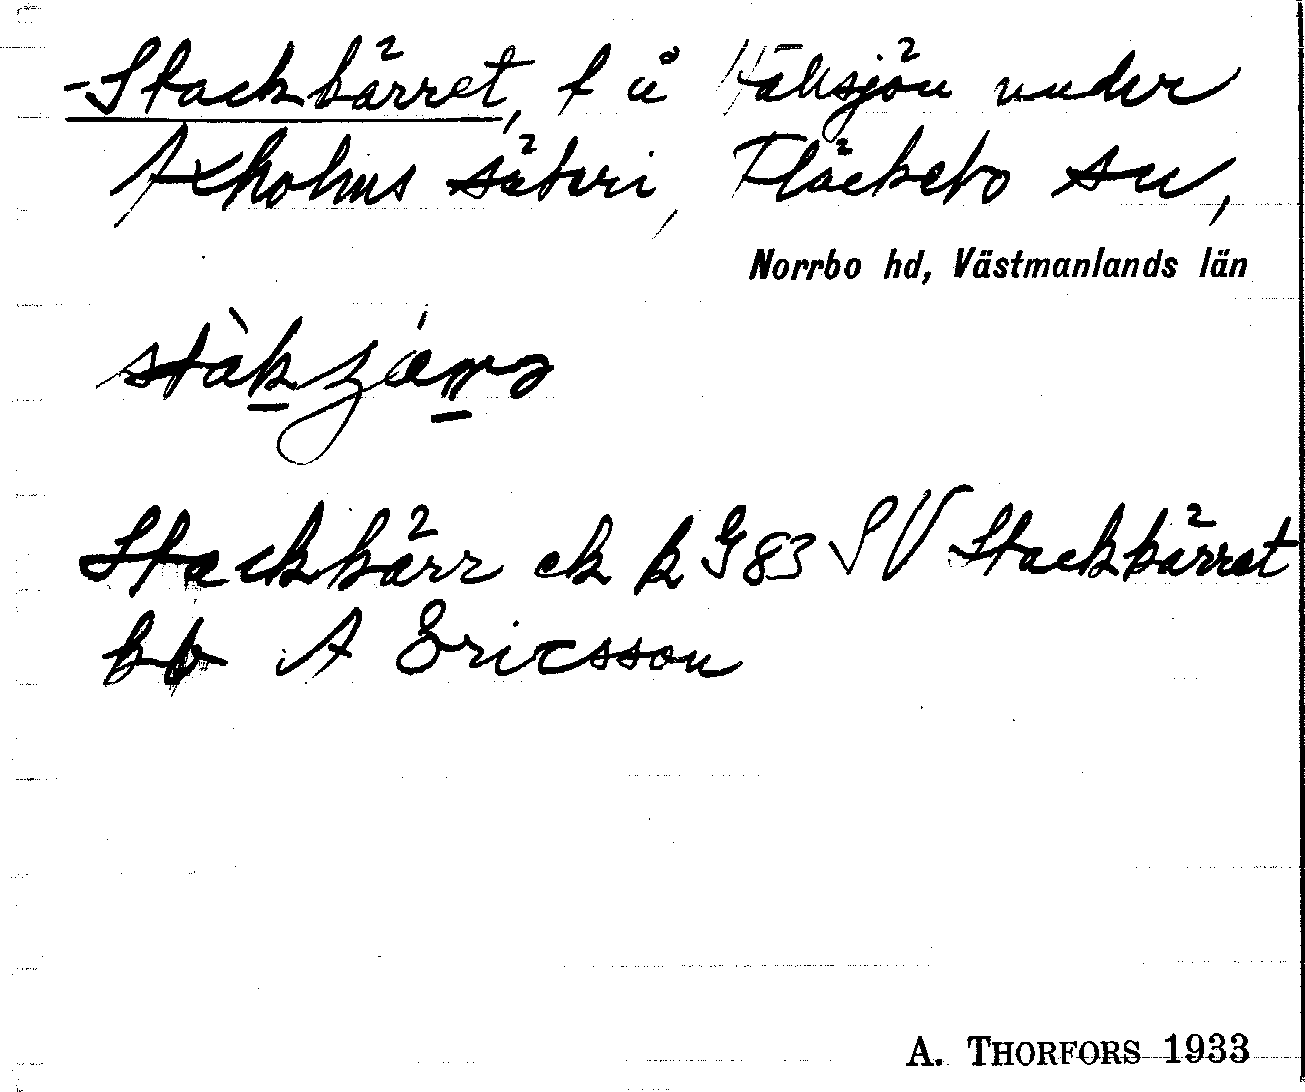 -Stackbärret, t u Hällsjön under
Axholms säteri, Fläckebo sn,
Norrbo hd, Västmanlands län
Stackkärr ek k G83 SV Stackbärret
A Ericsson
A. THORFORS 1933